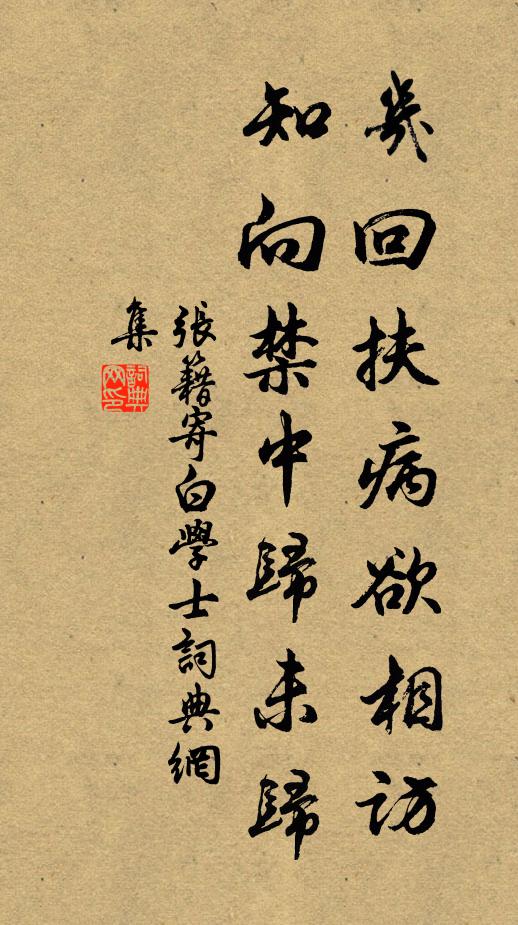 幾回扶病欲相訪
知向禁中歸未歸
張籍寄白學士詞典網
集
詞典網印